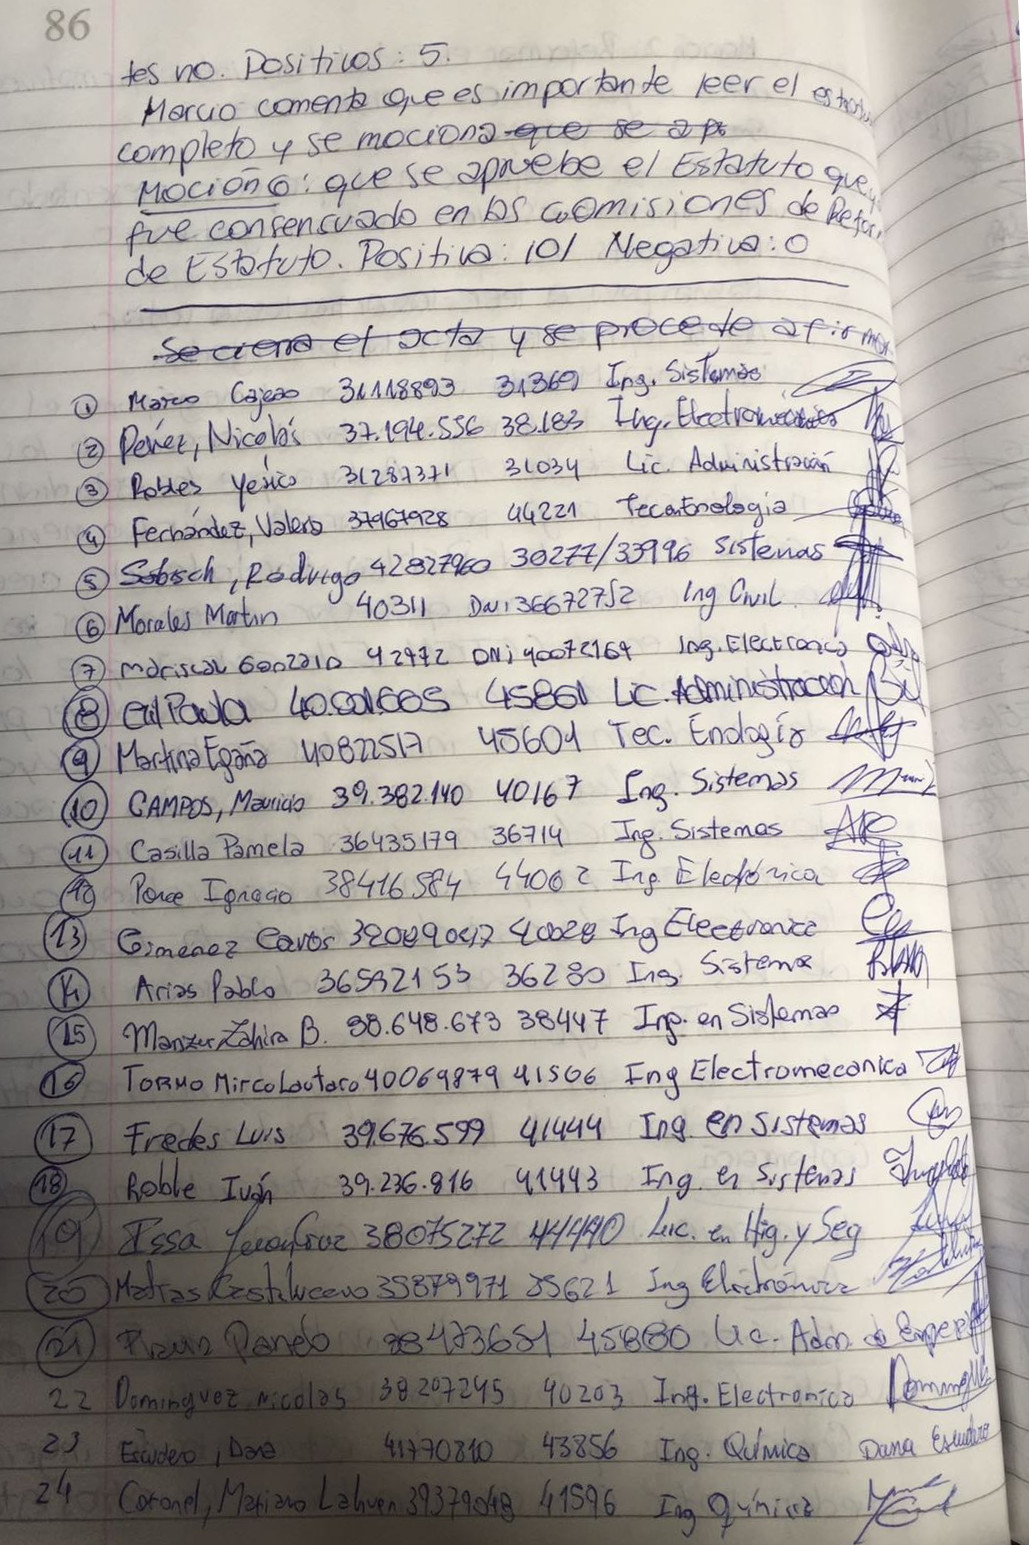 86
tes no. Positivos: 5.
Marcio comenta que es importante leer el
completo y se mociona que se ap
Moción 6: que se apruebe el Estatuto que
fue consensuado en las comisiones de Refor
de Estatuto. Positiva: 101 Negativa: 0
Se cierra el acta y se procede a firmar
1 Marco 31118893 31369 Ing. Sistemas
2 Pérez, Nicolás 37.194.556 38.183 Ing. Electromecánica
3 Robles Yesica 31287371 31034 Lic. Administración
4 Fernández, Valeria 37967928 44221 Tec. Enología
5 Sobisch, Rodrigo 42827960 30277/33996 Sistemas
6 Morales Martin 40311 DNI 36672752 Ing Civil
7 Mariscal Gonzalo 42972 DNI 40072164 Ing. Electronica
8 Gil Paula 40.001.605 45861 Lic. Administracion
9 Martina Egaña 40822517 45601 Tec. Enología
10 CAMPOS, Mauricio 39.382.140 40167 Ing. Sistemas
11 Casilla Pamela 36435179 36714 Ing. Sistemas
12 Ponce Ignacio 38416584 44002 Ing. Electrónica
13 Gimenez Carlos 40028 Ing Electronica
14 Arias Pablo 36592153 36280 Ing. Sistema
15 Manzur Zahira B. 38.648.673 38447 Ing. en Sistemas
16 TORMO Mirco Lautaro 40069879 41506 Ing Electromecanica
17 Fredes Luis 39.676.599 41444 Ing. en sistemas
18 Roble Iván 39.236.816 41443 Ing. en Sistemas
19 Issa 38075272 44440 Lic. en Hig. y Seg
20 Matias 35879971 35621 Ing Electrónica
21 38473651 45880 Lic. Adm. de Empre
22 Dominguez Nicolas 38207245 40203 Ing. Electronica
23 Escudero, Dana 41770810 43856 Ing. Química Dana Escudero
24 Coronel, Mariano 39379048 41596 Ing Química